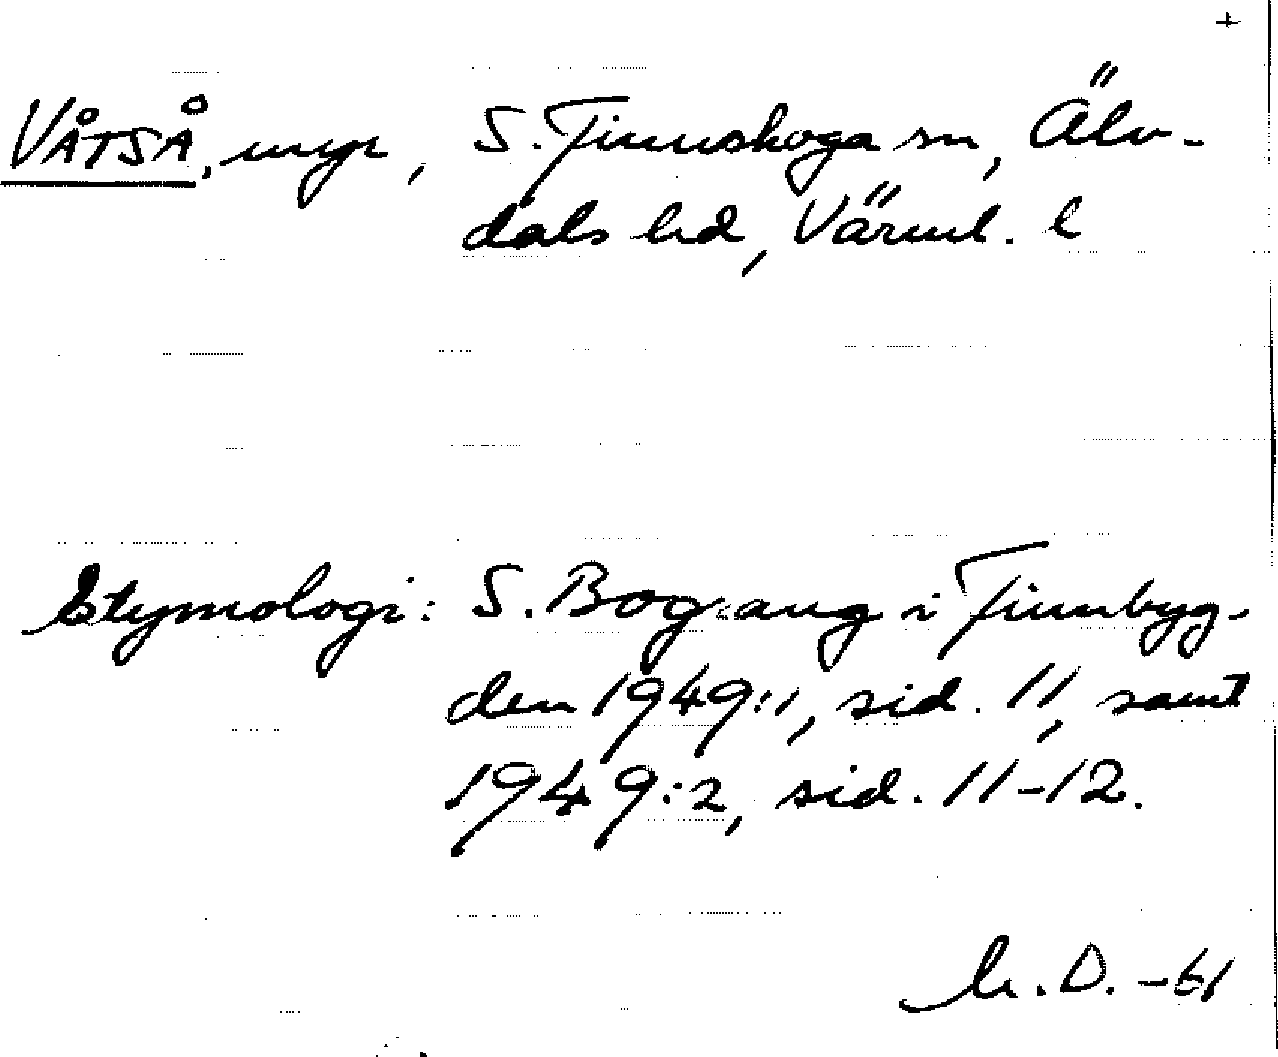 +
VÅTSÅ, myr, S. Finnskoga sn, Älv-
dals hd, Värml. l
Etymologi: S. Bograng i Finnbyg-
den 1949:1, sid. 11, samt
1949:2, sid. 11-12.
D. -61